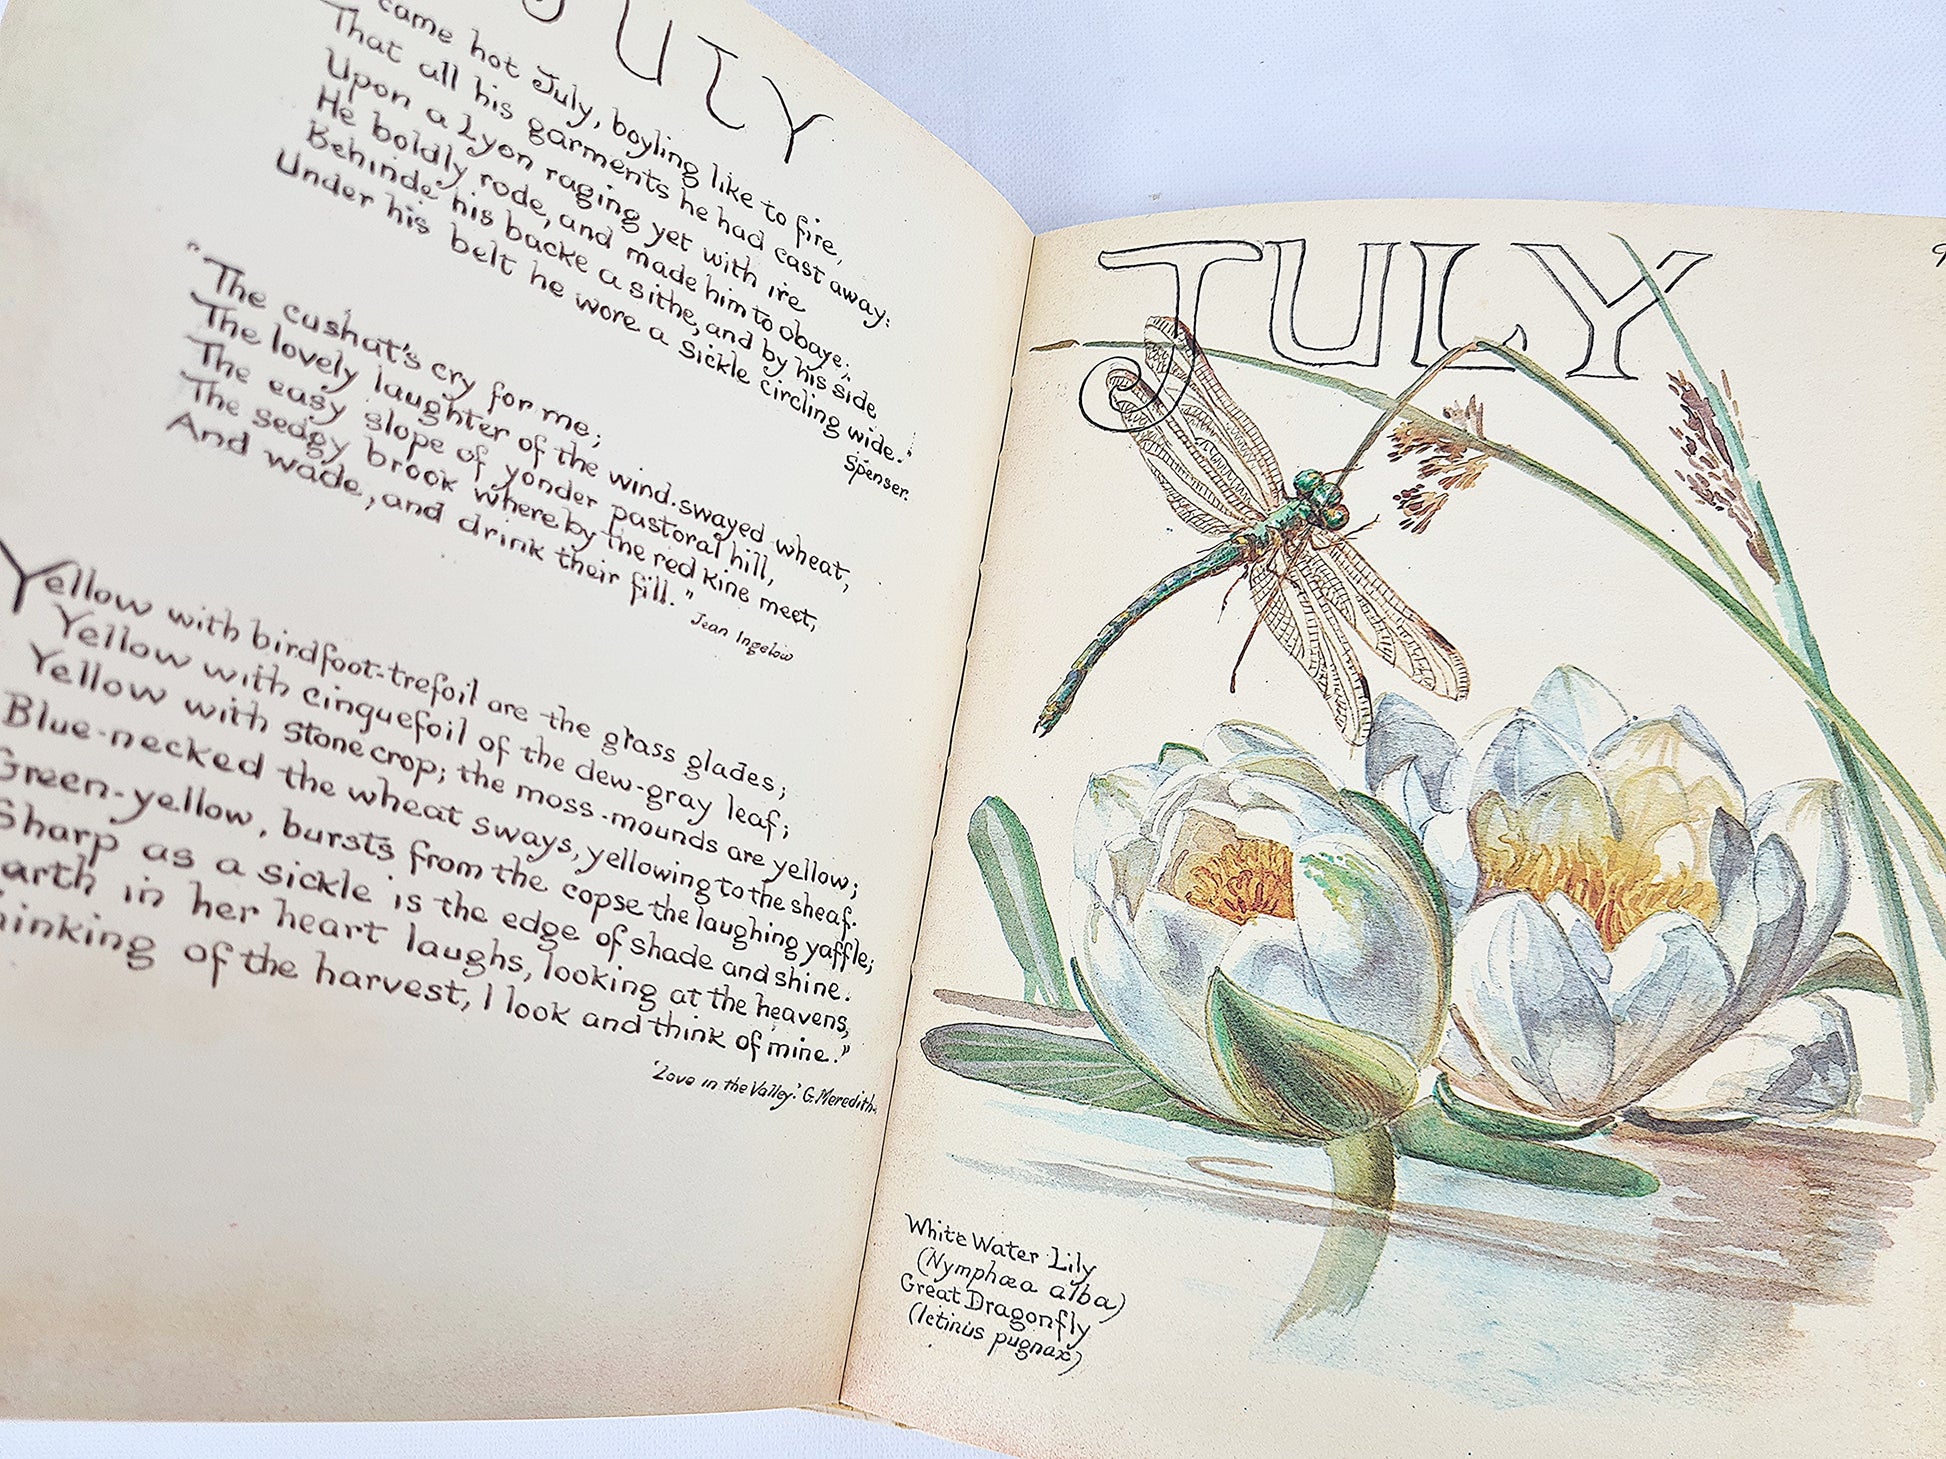 JULY
came hot July, boyling like to fire,
That all his garments he had cast away:
Upon a Lyon raging yet with ire
He boldly rode, and made him to obaye;
Behinde his backe a sithe, and by his side
Under his belt he wore a sickle circling wide."
Spenser.
"The cushat's cry for me;
The lovely laughter of the wind-swayed wheat,
The easy slope of yonder pastoral hill,
The sedgy brook whereby the red kine meet,
And wade, and drink their fill."
Jean Ingelow
Yellow with birdfoot-trefoil are the grass glades;
Yellow with cinquefoil of the dew-gray leaf;
Yellow with stonecrop; the moss-mounds are yellow;
Blue-necked the wheat sways, yellowing to the sheaf.
Green-yellow, bursts from the copse the laughing yaffle;
Sharp as a sickle is the edge of shade and shine.
arth in her heart laughs, looking at the heavens,
hinking of the harvest, I look and think of mine."
'Love in the Valley.' G. Meredith.
JULY
White Water Lily
(Nymphœa alba)
Great Dragonfly
(Ictinus pugnax)